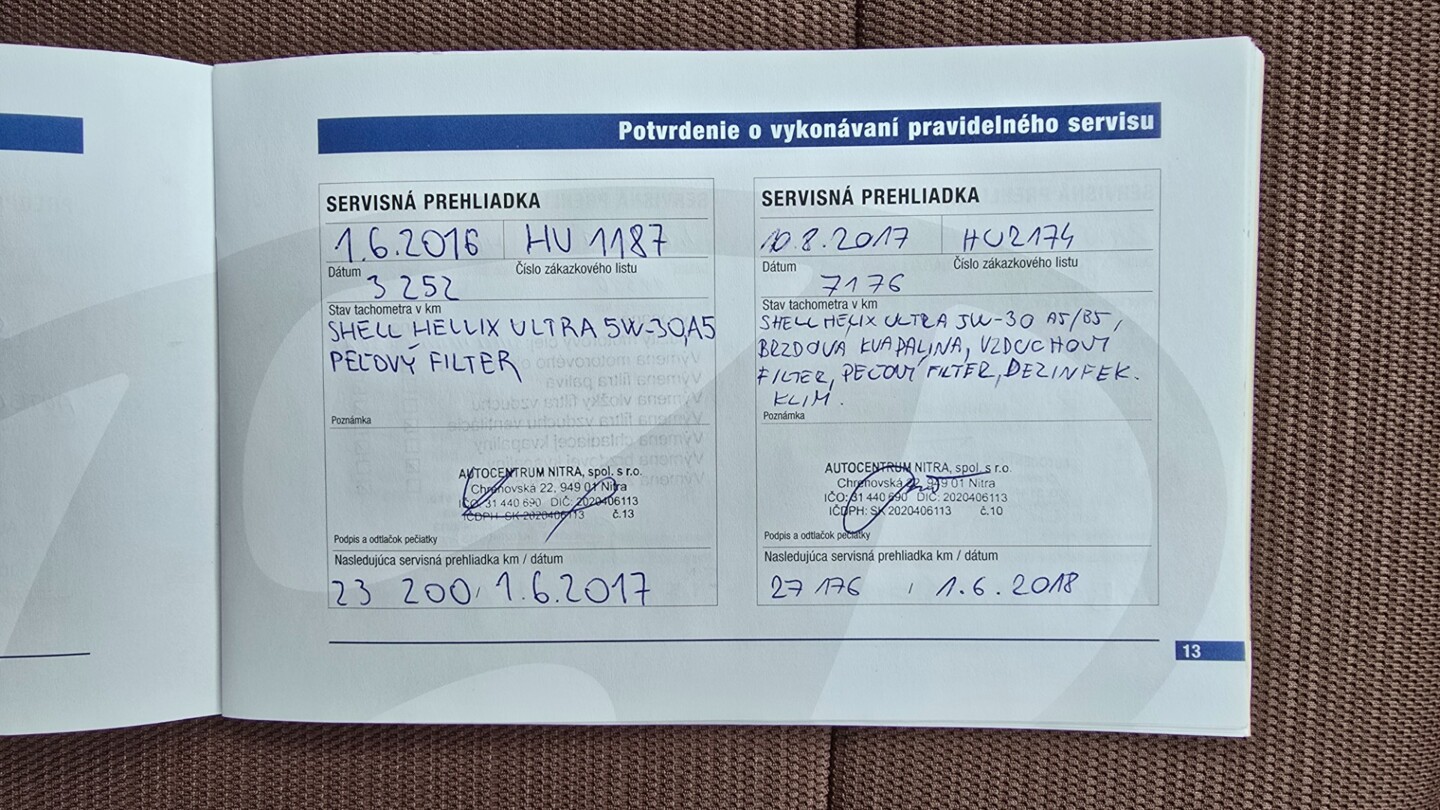 Potvrdenie o vykonávaní pravidelného servisu
SERVISNÁ PREHLIADKA
1.6.2016 HU 1187
Dátum Číslo zákazkového listu
3 252
Stav tachometra v km
SHELL HELLIX ULTRA 5W-30, A5
PEĽOVÝ FILTER
Poznámka
AUTOCENTRUM NITRA, spol. s r.o.
Chrenovská 22, 949 01 Nitra
IČO: 31 440 690 DIČ: 2020406113
IČDPH: SK 2020406113 č.13
Podpis a odtlačok pečiatky
Nasledujúca servisná prehliadka km / dátum
23 200, 1.6.2017
SERVISNÁ PREHLIADKA
10.8.2017 HU2174
Dátum Číslo zákazkového listu
7176
Stav tachometra v km
SHELL HELIX ULTRA 5W-30 A5/B5,
BRZDOVA KVAPALINA, VZDUCHOVÝ
FILTER, PEĽOVÝ FILTER, DEZINFEK.
KLIM.
Poznámka
AUTOCENTRUM NITRA, spol. s r.o.
Chrenovská 22, 949 01 Nitra
IČO: 31 440 690 DIČ: 2020406113
IČDPH: SK 2020406113 č.10
Podpis a odtlačok pečiatky
Nasledujúca servisná prehliadka km / dátum
27 176 , 1.6.2018
13